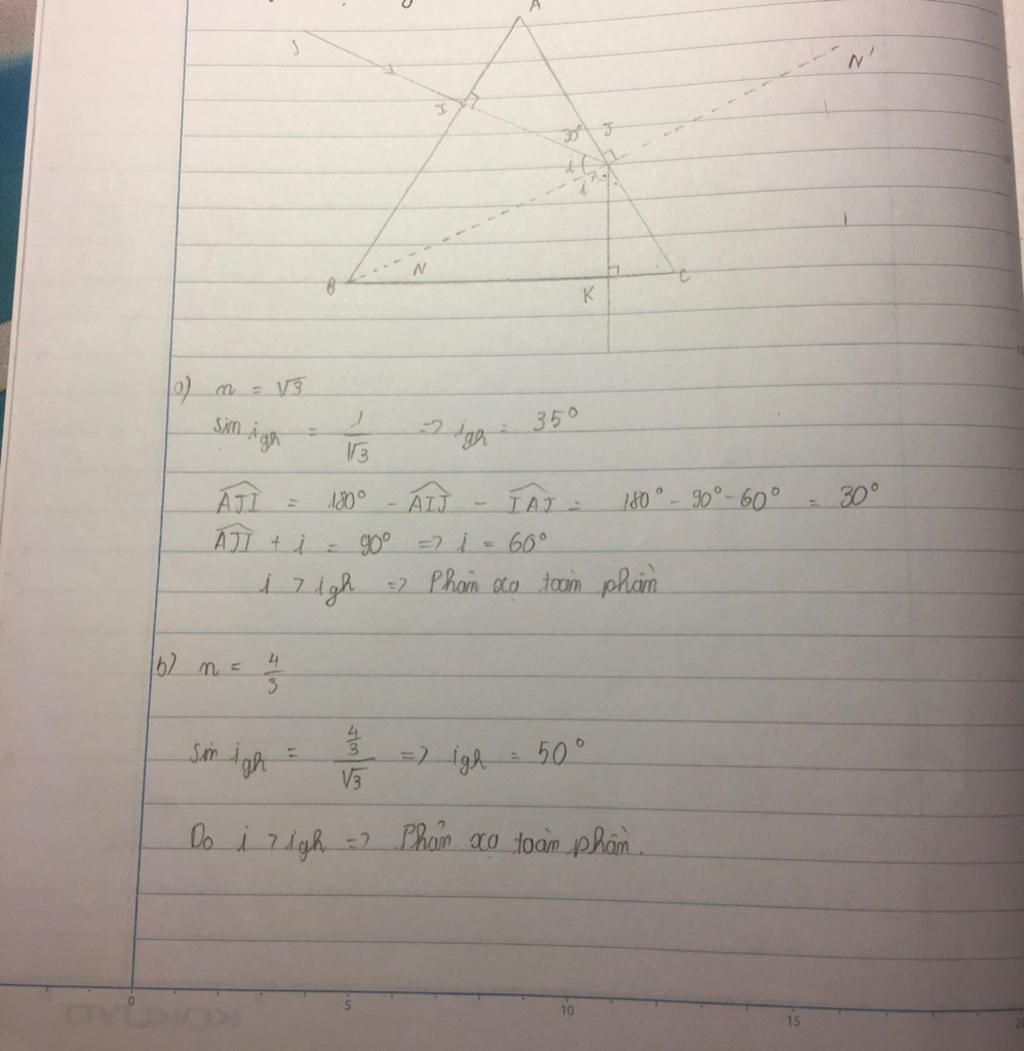 A
S
N'
I
30°
J
i
i'
N
B
K
C
a) n = √3
sin igh = 1/√3 => igh = 35°
AJI = 180° - AIJ - IAJ = 180° - 90° - 60° = 30°
AJI + i = 90° => i = 60°
i > igh => Phản xạ toàn phần
b) n = 4/3
sin igh = 4/3/√3 => igh = 50°
Do i > igh => Phản xạ toàn phần.
0 5 10 15 20
KOKUYO